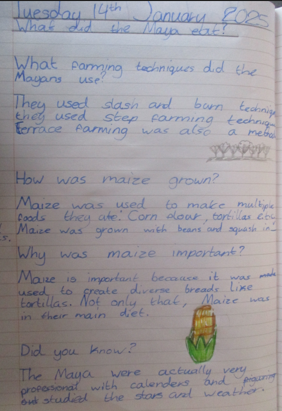 Tuesday 14th January 2025
What did the Maya eat?
What farming techniques did the
Mayans use?
They used slash and burn technique
they used step farming technique
terrace farming was also a method
How was maize grown?
Maize was used to make multiple
foods they ate: Corn flour, tortillas etc.
Maize was grown with beans and squash in
Why was maize important?
Maize is important because it was made
used to create diverse breads like
tortillas. Not only that, Maize was
in their main diet.
Did you know?
The Maya were actually very
profesional with calenders and
and studied the stars and weather.